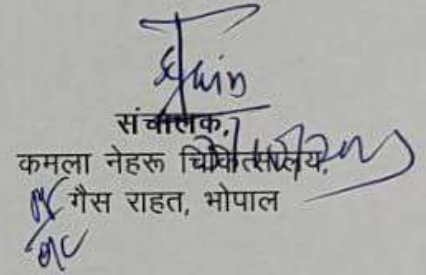 Jain
संचालक,
कमला नेहरू चिकित्सालय,
गैस राहत, भोपाल